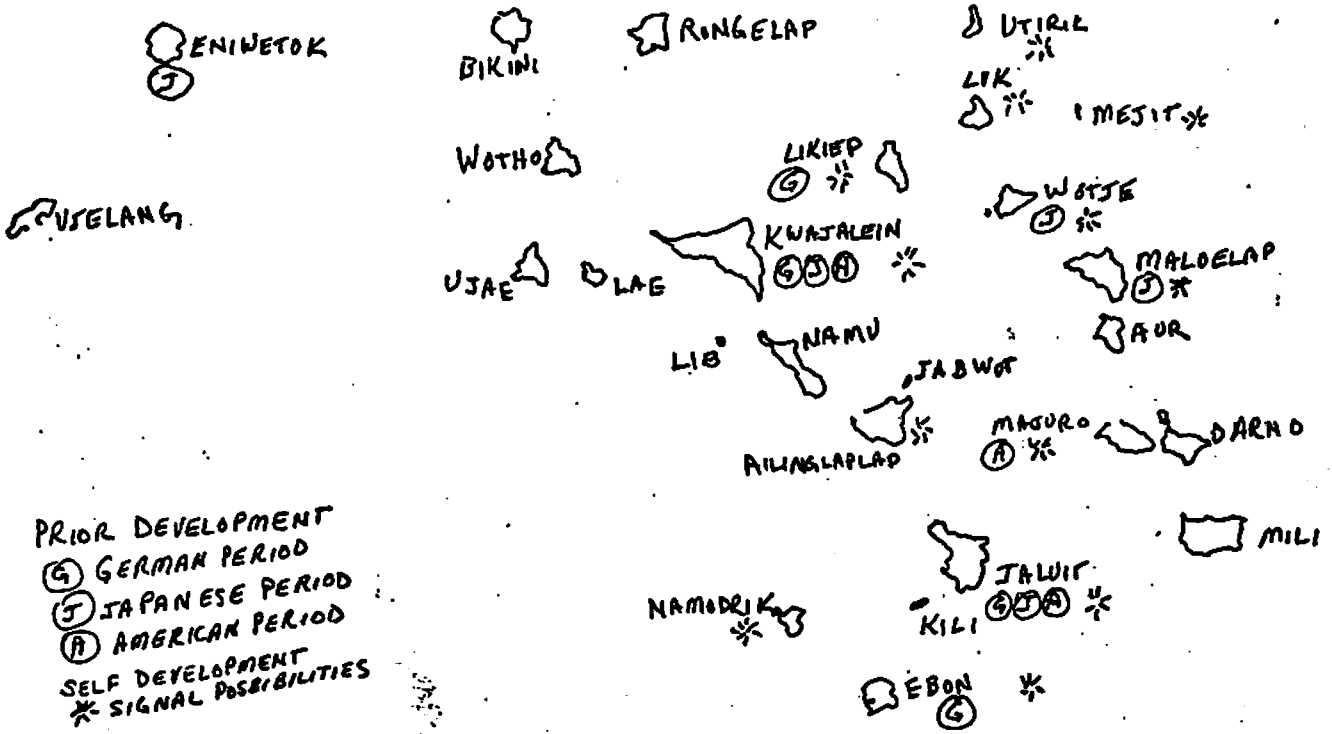 ENIWETOK
J
BIKINI
RONGELAP
UTIRIK
LIK
MEJIT
WOTHO
LIKIEP
G
WOTJE
J
UJELANG
KWAJALEIN
G J A
UJAE
LAE
MALOELAP
J
AUR
LIB
NAMU
JABWOT
AILINGLAPLAP
MAJURO
A
DARNO
MILI
JALUIT
G J A
KILI
NAMODRIK
EBON
G
PRIOR DEVELOPMENT
G GERMAN PERIOD
J JAPANESE PERIOD
A AMERICAN PERIOD
SELF DEVELOPMENT
SIGNAL POSSIBILITIES